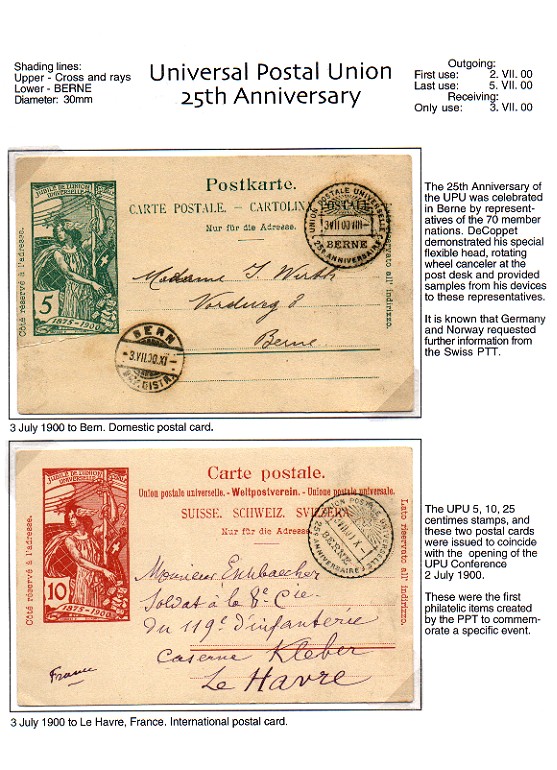 Shading lines:
Upper - Cross and rays
Lower - BERNE
Diameter: 30mm
Universal Postal Union
25th Anniversary
Outgoing:
First use: 2. VII. 00
Last use: 5. VII. 00
Receiving:
Only use: 3. VII. 00
JUBILÉ DE L'UNION
UNIVERSELLE
5
1875-1900
Côté réservé à l'adresse.
Postkarte.
CARTE POSTALE. - CARTOLINA POSTALE.
Nur für die Adresse.
UNION POSTALE UNIVERSELLE
3 VII 00 VIII
BERNE
25E ANNIVERSAIRE
Madame J. Wirth
Nordweg 8
Berne
BERN
3.VII.00.XI
BRF. DISTR.
all' indirizzo.
3 July 1900 to Bern. Domestic postal card.
The 25th Anniversary of
the UPU was celebrated
in Berne by represent-
atives of the 70 member
nations. DeCoppet
demonstrated his special
flexible head, rotating
wheel canceler at the
post desk and provided
samples from his devices
to these representatives.
It is known that Germany
and Norway requested
further information from
the Swiss PTT.
JUBILÉ DE L'UNION
UNIVERSELLE
10
1875-1900
Côté réservé à l'adresse.
Carte postale.
Union postale universelle. - Weltpostverein. - Unione postale universale.
SUISSE. SCHWEIZ. SVIZZERA.
Nur für die Adresse.
Lato riservato all' indirizzo.
UNION POSTALE UNIVERSELLE
25E ANNIVERSAIRE
Monsieur
Soldat à la 8e Cie.
du 119e d'infanterie
Caserne Kleber
Le Havre
France
3 July 1900 to Le Havre, France. International postal card.
The UPU 5, 10, 25
centimes stamps, and
these two postal cards
were issued to coincide
with the opening of the
UPU Conference
2 July 1900.
These were the first
philatelic items created
by the PPT to commem-
orate a specific event.